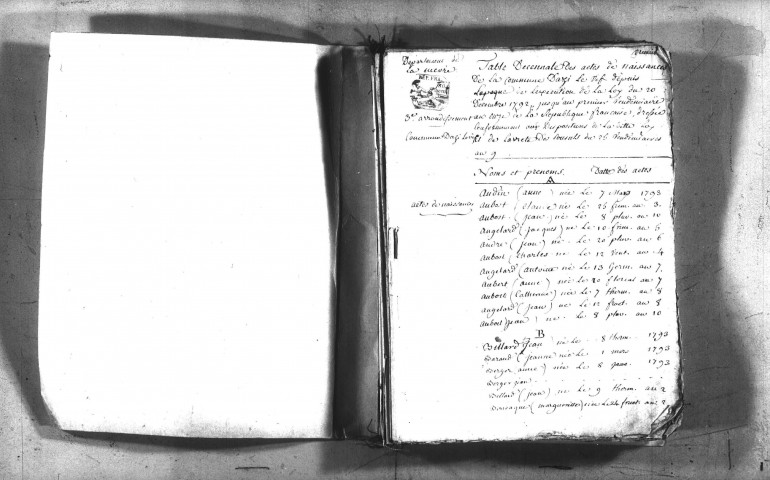 Département de
la nievre
Table Decennale Des actes de naissances
De la Commune Dazi le vif depuis
Lepoque de lexecution de la Loy du 20
Decembre 1792, jusqu'au premier vendemiaire
3e arrondissement
an onze de la Republique française, dressée
Commune Dazi le vif
Conformement aux Dispositions de la ditte Loy
et de larrete Des Consuls du 25 vendemiaire
an 9
Noms et prenoms. Datte des actes
A
actes de naissances
Audin (anne) née Le 7 Mars 1793
aubert née Le 25 frim. an 3.
aubost (jean) né Le 8 pluv. an 10
Angelard (jacques) né Le 10 frim. an 6
andré (jean) né Le 20 pluv. an 6
Aubost (charles né Le 12 vent. an 4
Angelard (antoine né Le 13 Germ. an 7,
aubert (anne) née Le 20 floreal an 7
aubost (Catherine) née Le 7 therm. an 8
angelard (jean) né Le 12 fruct. an 8
aubost (jean) né Le 8 pluv. an 10
B
Billard jean né Le 8 1793
(jeanne née Le 1 mars 1793
Berger (anne) née Le 8 1793
Berger jean
Billard (jean) né Le 9 therm. an 2
(margueritte) née Le fruct. an 2